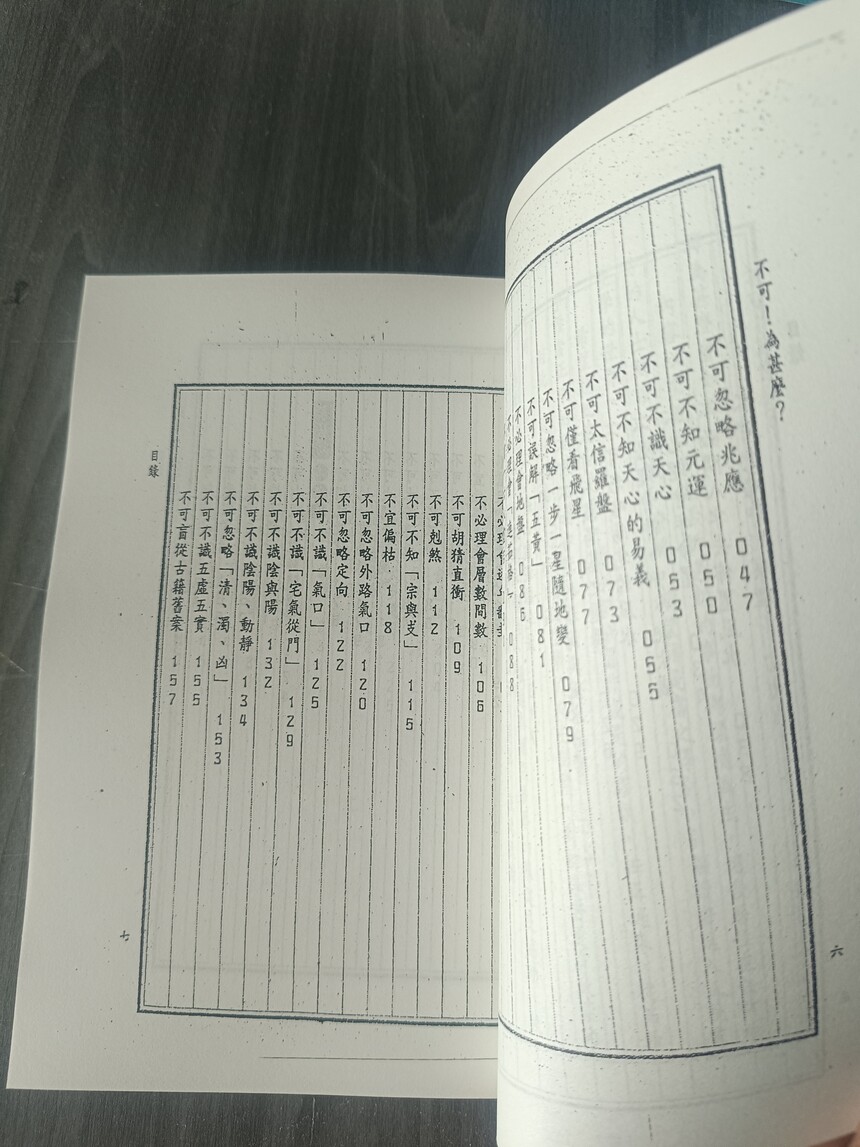 不可！為甚麼？
不可忽略兆應 047
不可不知元運 050
不可不識天心 053
不可不知天心的易義 055
不可太信羅盤 073
不可僅看飛星 077
不可忽略一步一星隨地變 079
不可誤解「五黃」 081
不必理會地盤 086
不必理會 088
不必理會
不必理會層數間數 106
不可胡猜直衝 109
不可剋煞 112
不可不知「宗與支」 115
不宜偏枯 118
不可忽略外路氣口 120
不可忽略定向 122
不可不識「氣口」 125
不可不識「宅氣從門」 129
不可不識陰與陽 132
不可不識陰陽、動靜 134
不可忽略「清、濁、凶」 153
不可不識五虛五實 155
不可盲從古籍舊案 157
目錄
六
七